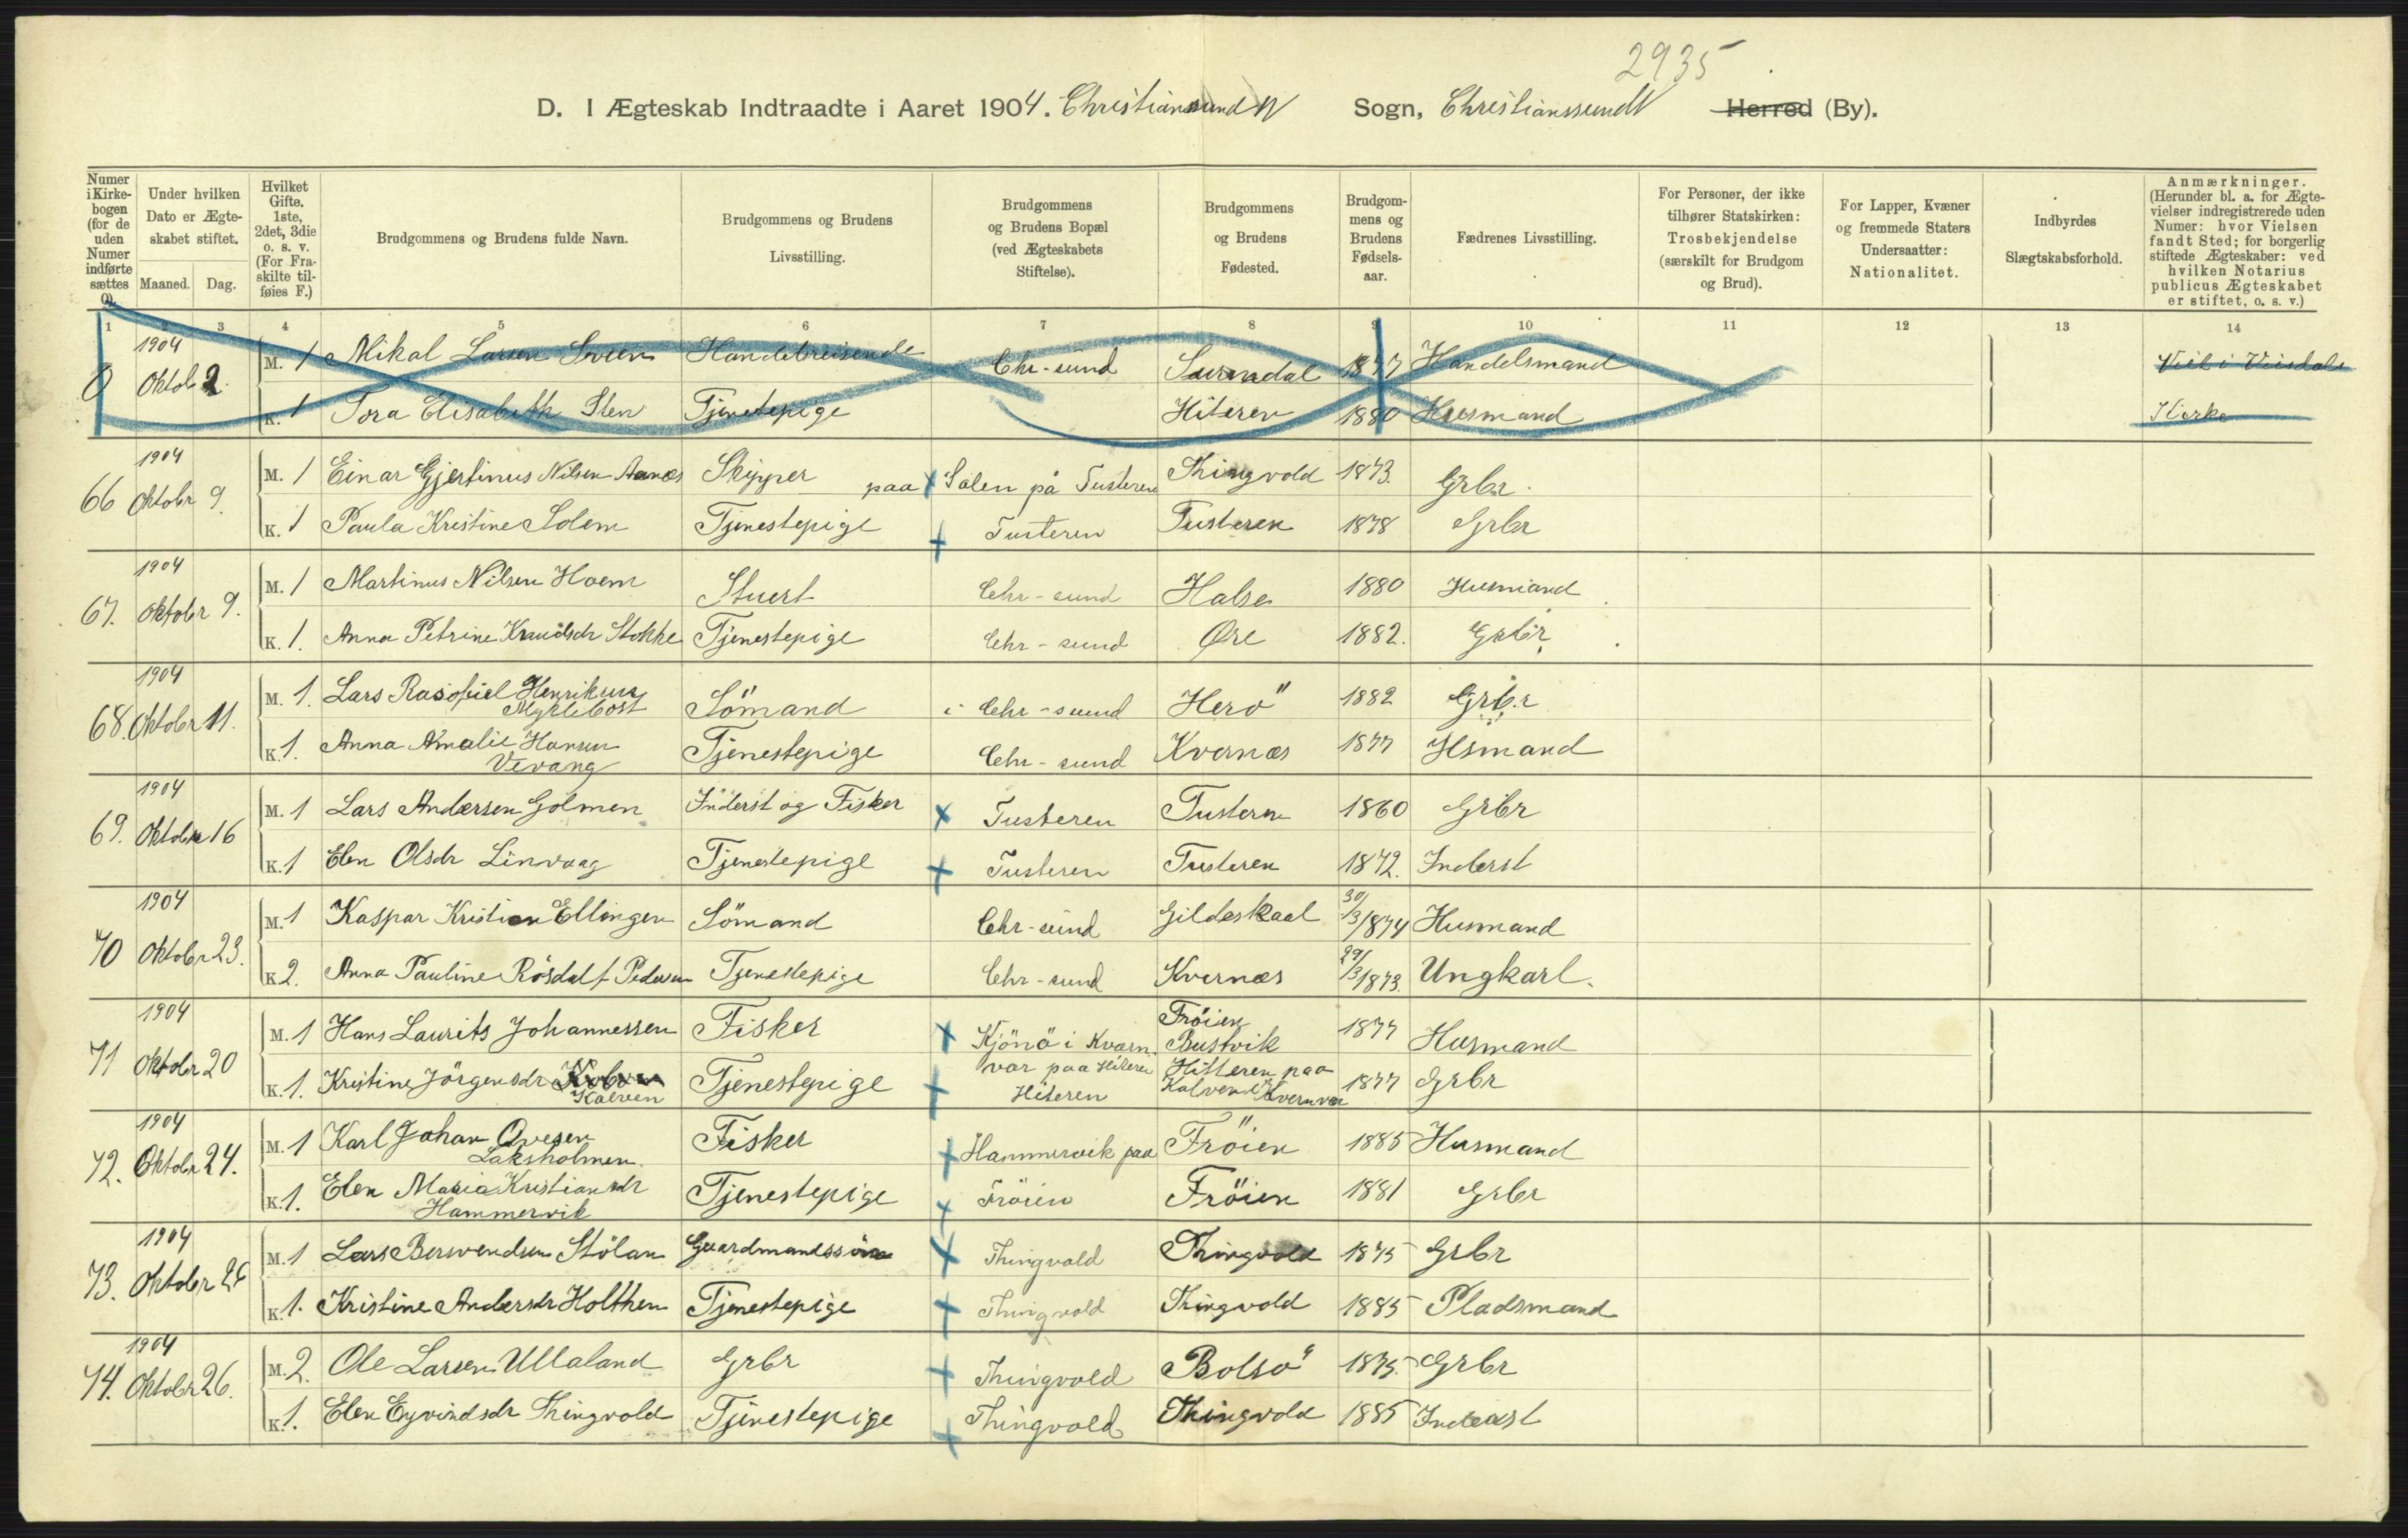 2935
D. I Ægteskab Indtraadte i Aaret 1904. Christianssund N Sogn, Christianssund N Herred (By).
Numer i Kirke-bogen (for de uden Numer indførte sættes 0). Under hvilken Dato er Ægte-skabet stiftet. Maaned. Dag. Hvilket Gifte. 1ste, 2det, 3die o. s. v. (For Fra-skilte til-føies F.) Brudgommens og Brudens fulde Navn. Brudgommens og Brudens Livsstilling. Brudgommens og Brudens Bopæl (ved Ægteskabets Stiftelse). Brudgommens og Brudens Fødested. Brudgom-mens og Brudens Fødsels-aar. Fædrenes Livsstilling. For Personer, der ikke tilhører Statskirken: Trosbekjendelse (særskilt for Brudgom og Brud). For Lapper, Kvæner og fremmede Staters Undersaatter: Nationalitet. Indbyrdes Slægtskabsforhold. Anmærkninger. (Herunder bl. a. for Ægte-vielser indregistrerede uden Numer: hvor Vielsen fandt Sted; for borgerlig stiftede Ægteskaber: ved hvilken Notarius publicus Ægteskabet er stiftet, o. s. v.)
1 2 3 4 5 6 7 8 9 10 11 12 13 14
1904
0 Oktob 2. M. 1 Mikal Larsen Handelsreisende Chr-sund Surendal 1877 Handelsmand Viet i
K. 1 Tora Elisabeth Sten Tjenestepige Hiteren 1880 Husmand Kirke
1904
66 Oktobr 9. M. 1 Einar Gjertinus Nilsen Aanes Skipper paa Solem på Tusteren Thingvold 1873. Grbr.
K. 1 Paula Kristine Solem Tjenestepige Tusteren Tusteren 1878 Grbr
1904
67. Oktobr 9. M. 1 Martinus Nilsen Hoem Stuert Chr-sund Halse 1880 Husmand
K. 1. Anna Petrine Knudsdr Stokke Tjenestepige Chr-sund Øre 1882. Grbr.
1904
68. Oktobr 11. M. 1. Lars Henrikus Myklebost Sömand i Chr-sund Herö 1882 Grbr
K. 1. Anna Amalie Hansen Vevang Tjenestepige Chr-sund Kvernæs 1877 Hsmand
1904
69. Oktobr 16 M. 1 Lars Andersen Golmen Inderst og Fisker Tusteren Tusteren 1860 Grbr
K. 1 Elen Olsdr Linvaag Tjenestepige Tusteren Tusteren 1872. Inderst
1904
70 Oktobr 23. M. 1 Kaspar Kristian Ellingsen Sömand Chr-sund Gildeskaal 30/3/1874 Husmand
K. 2. Anna Pauline Rösdal f Pedersen Tjenestepige Chr-sund Kvernæs 29/3/1873. Ungkarl.
1904
71 Oktobr 20 M. 1 Hans Laurits Johannessen Fisker Kjönö i Kværn- Fröien Bustvik 1877 Husmand
K. 1. Kristine Jörgensdr Kalveen Tjenestepige var paa Hiteren Hiteren Hitteren paa Kalven i Kvernver 1877 Grbr
1904
72. Oktobr 24. M. 1 Karl Johan Ovesen Laksholmen. Fisker Hammervik paa Fröien 1885 Husmand
K. 1. Elen Maria Kristiansdr Hammervik Tjenestepige Fröien Fröien 1881 Grbr
1904
73. Oktobr 26 M. 1 Lars Berwendsen Stölan Gaardmandssön Thingvold Thingvold 1875 Grbr
K. 1. Kristine Andersdr Holthen Tjenestepige Thingvold Thingvold 1885 Pladsmand
1904
74. Oktobr 26. M. 2. Ole Larsen Ullaland Grbr Thingvold Bolsö 1875. Grbr
K. 1. Elen Eyvindsdr Thingvold Tjenestepige Thingvold Thingvold 1885 Inderst